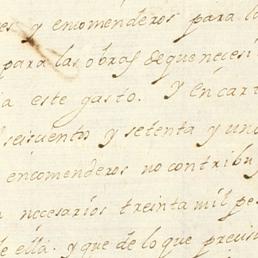 es y encomenderos para la
para las obras de que necesi
a este gasto. Y en cart
seiscientos y setenta y uno
encomenderos no contribu
necesarios treinta mil pe
de ella. y que de lo que precisa